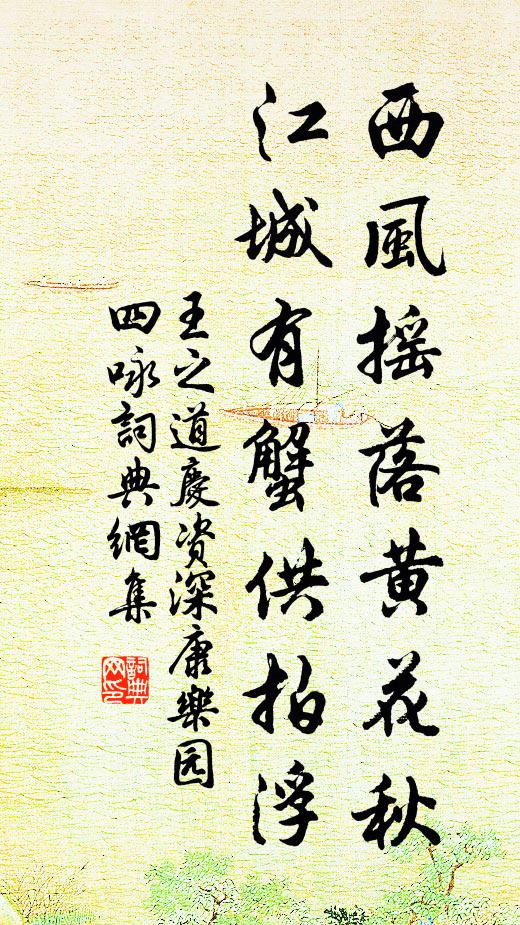 西風摇落黄花秋
江城有蟹供拍浮
王之道慶资深康樂园
四咏詞典網集
詞典
网印